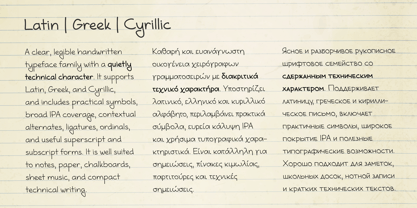 Latin | Greek | Cyrillic
A clear, legible handwritten
typeface family with a quietly
technical character. It supports
Latin, Greek, and Cyrillic,
and includes practical symbols,
broad IPA coverage, contextual
alternates, ligatures, ordinals,
and useful superscript and
subscript forms. It is well suited
to notes, paper, chalkboards,
sheet music, and compact
technical writing.
Καθαρή και ευανάγνωστη
οικογένεια χειρόγραφων
γραμματοσειρών με διακριτικά
τεχνικό χαρακτήρα. Υποστηρίζει
λατινικό, ελληνικό και κυριλλικό
αλφάβητο, περιλαμβάνει πρακτικά
σύμβολα, ευρεία κάλυψη IPA
και χρήσιμα τυπογραφικά χαρα-
κτηριστικά. Είναι κατάλληλη για
σημειώσεις, πίνακες κιμωλίας,
παρτιτούρες και τεχνικές
σημειώσεις.
Ясное и разборчивое рукописное
шрифтовое семейство со
сдержанным техническим
характером. Поддерживает
латиницу, греческое и кирилли-
ческое письмо, включает
практичные символы, широкое
покрытие IPA и полезные
типографические возможности.
Хорошо подходит для заметок,
школьных досок, нотной записи
и кратких технических текстов.